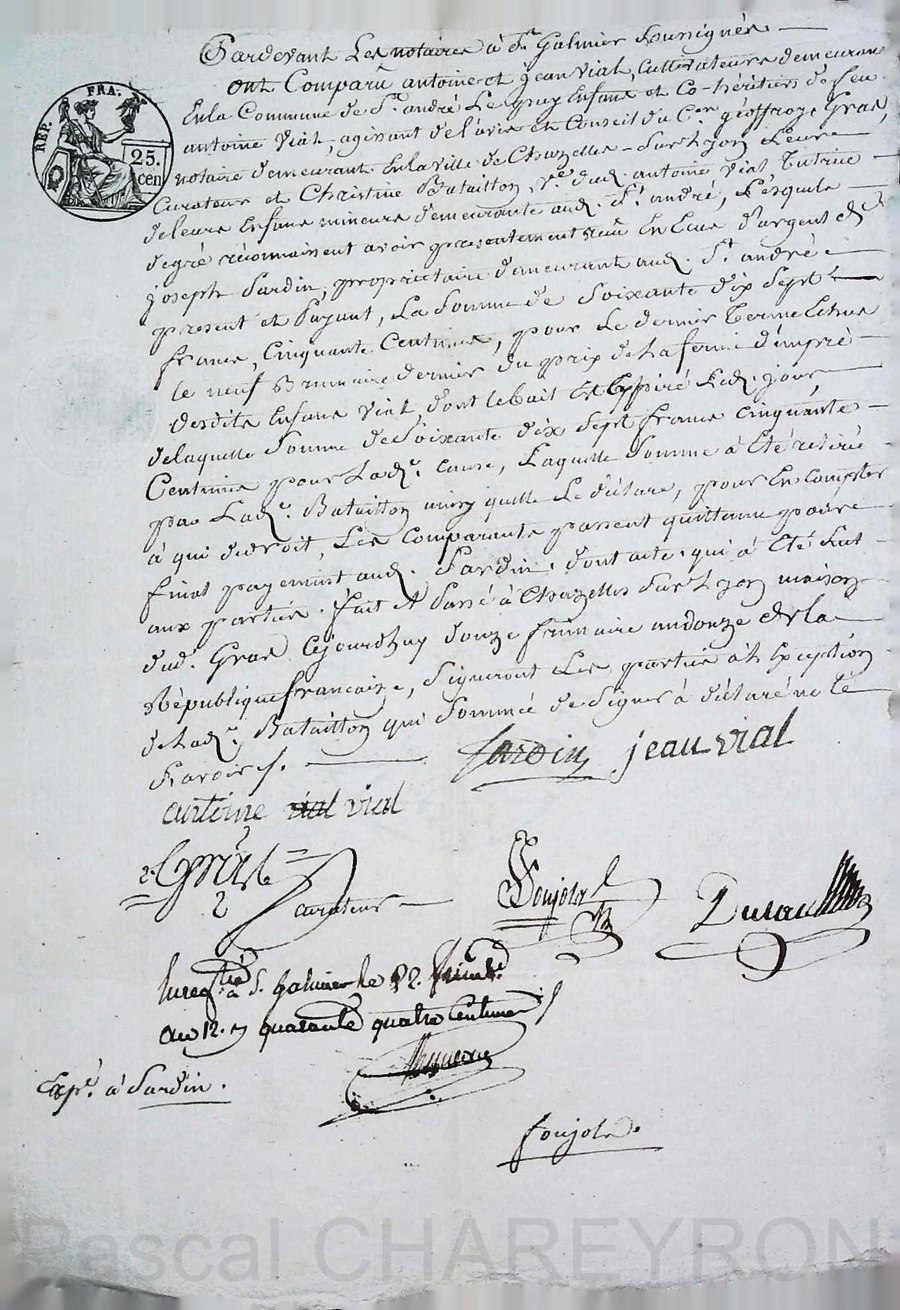 REP. FRA.
25.
cen
Pardevant Les notaires à St. Galmier Soussignés
ont Comparû antoine et jean vial, Cultivateurs demeurans
En la Commune de St. andré Le puy Enfans et Co-héritiers de feu
antoine Vial, agissant de l'avis et Conseil du Cen. géoffroze Gras,
notaire demeurant En la ville de Chazelles-Sur-Lyon Leur
Curateur et Christine Bataillon, Ve. dud. antoine Vial Tutrice
de leurs Enfans mineurs demeurante aud. St. andré, Lesquels
de gré réconnaissent avoir présentement reçû En Ecus d'argent de
joseph Jardin, propriétaire demeurant aud. St. andré
présent et Payant, La Somme de Soixante dix Sept
francs, Cinquante Centimes, pour Le dernier terme Echus
le neuf Brumaire dernier du prix de La ferme
desdits Enfans Vial, dont le bail Est Expiré Led. jour,
de laquelle Somme de Soixante dix Sept francs Cinquante
Centimes pour Lade. Cause, Laquelle Somme à Eté retiré
par Lade. Bataillon ainsy quelle Le déclare, pour En Compter
à qui de droit, Les Comparants passent quittance pour
final payement aud. Jardin. dont acte. qui à Eté Lut
aux parties. fait Et Passé à Chazelles Sur Lyon maison
dud. Gras Cejourdhuy douze frimaire an douze de la
République francaize, Signeront Les parties à L'Exception
de Lade. Bataillon qui Sommé de Signer à déclaré ne le
Savoir ./.
Jardin jean vial
antoine vial vial
Gras
Curateur
Poujola
Duran
Enregtré. à S. Galmier le 22. frimre.
an 12. quarante quatre Centimes
Expé. à Jardin.
Poujola.
Pascal CHAREYRON